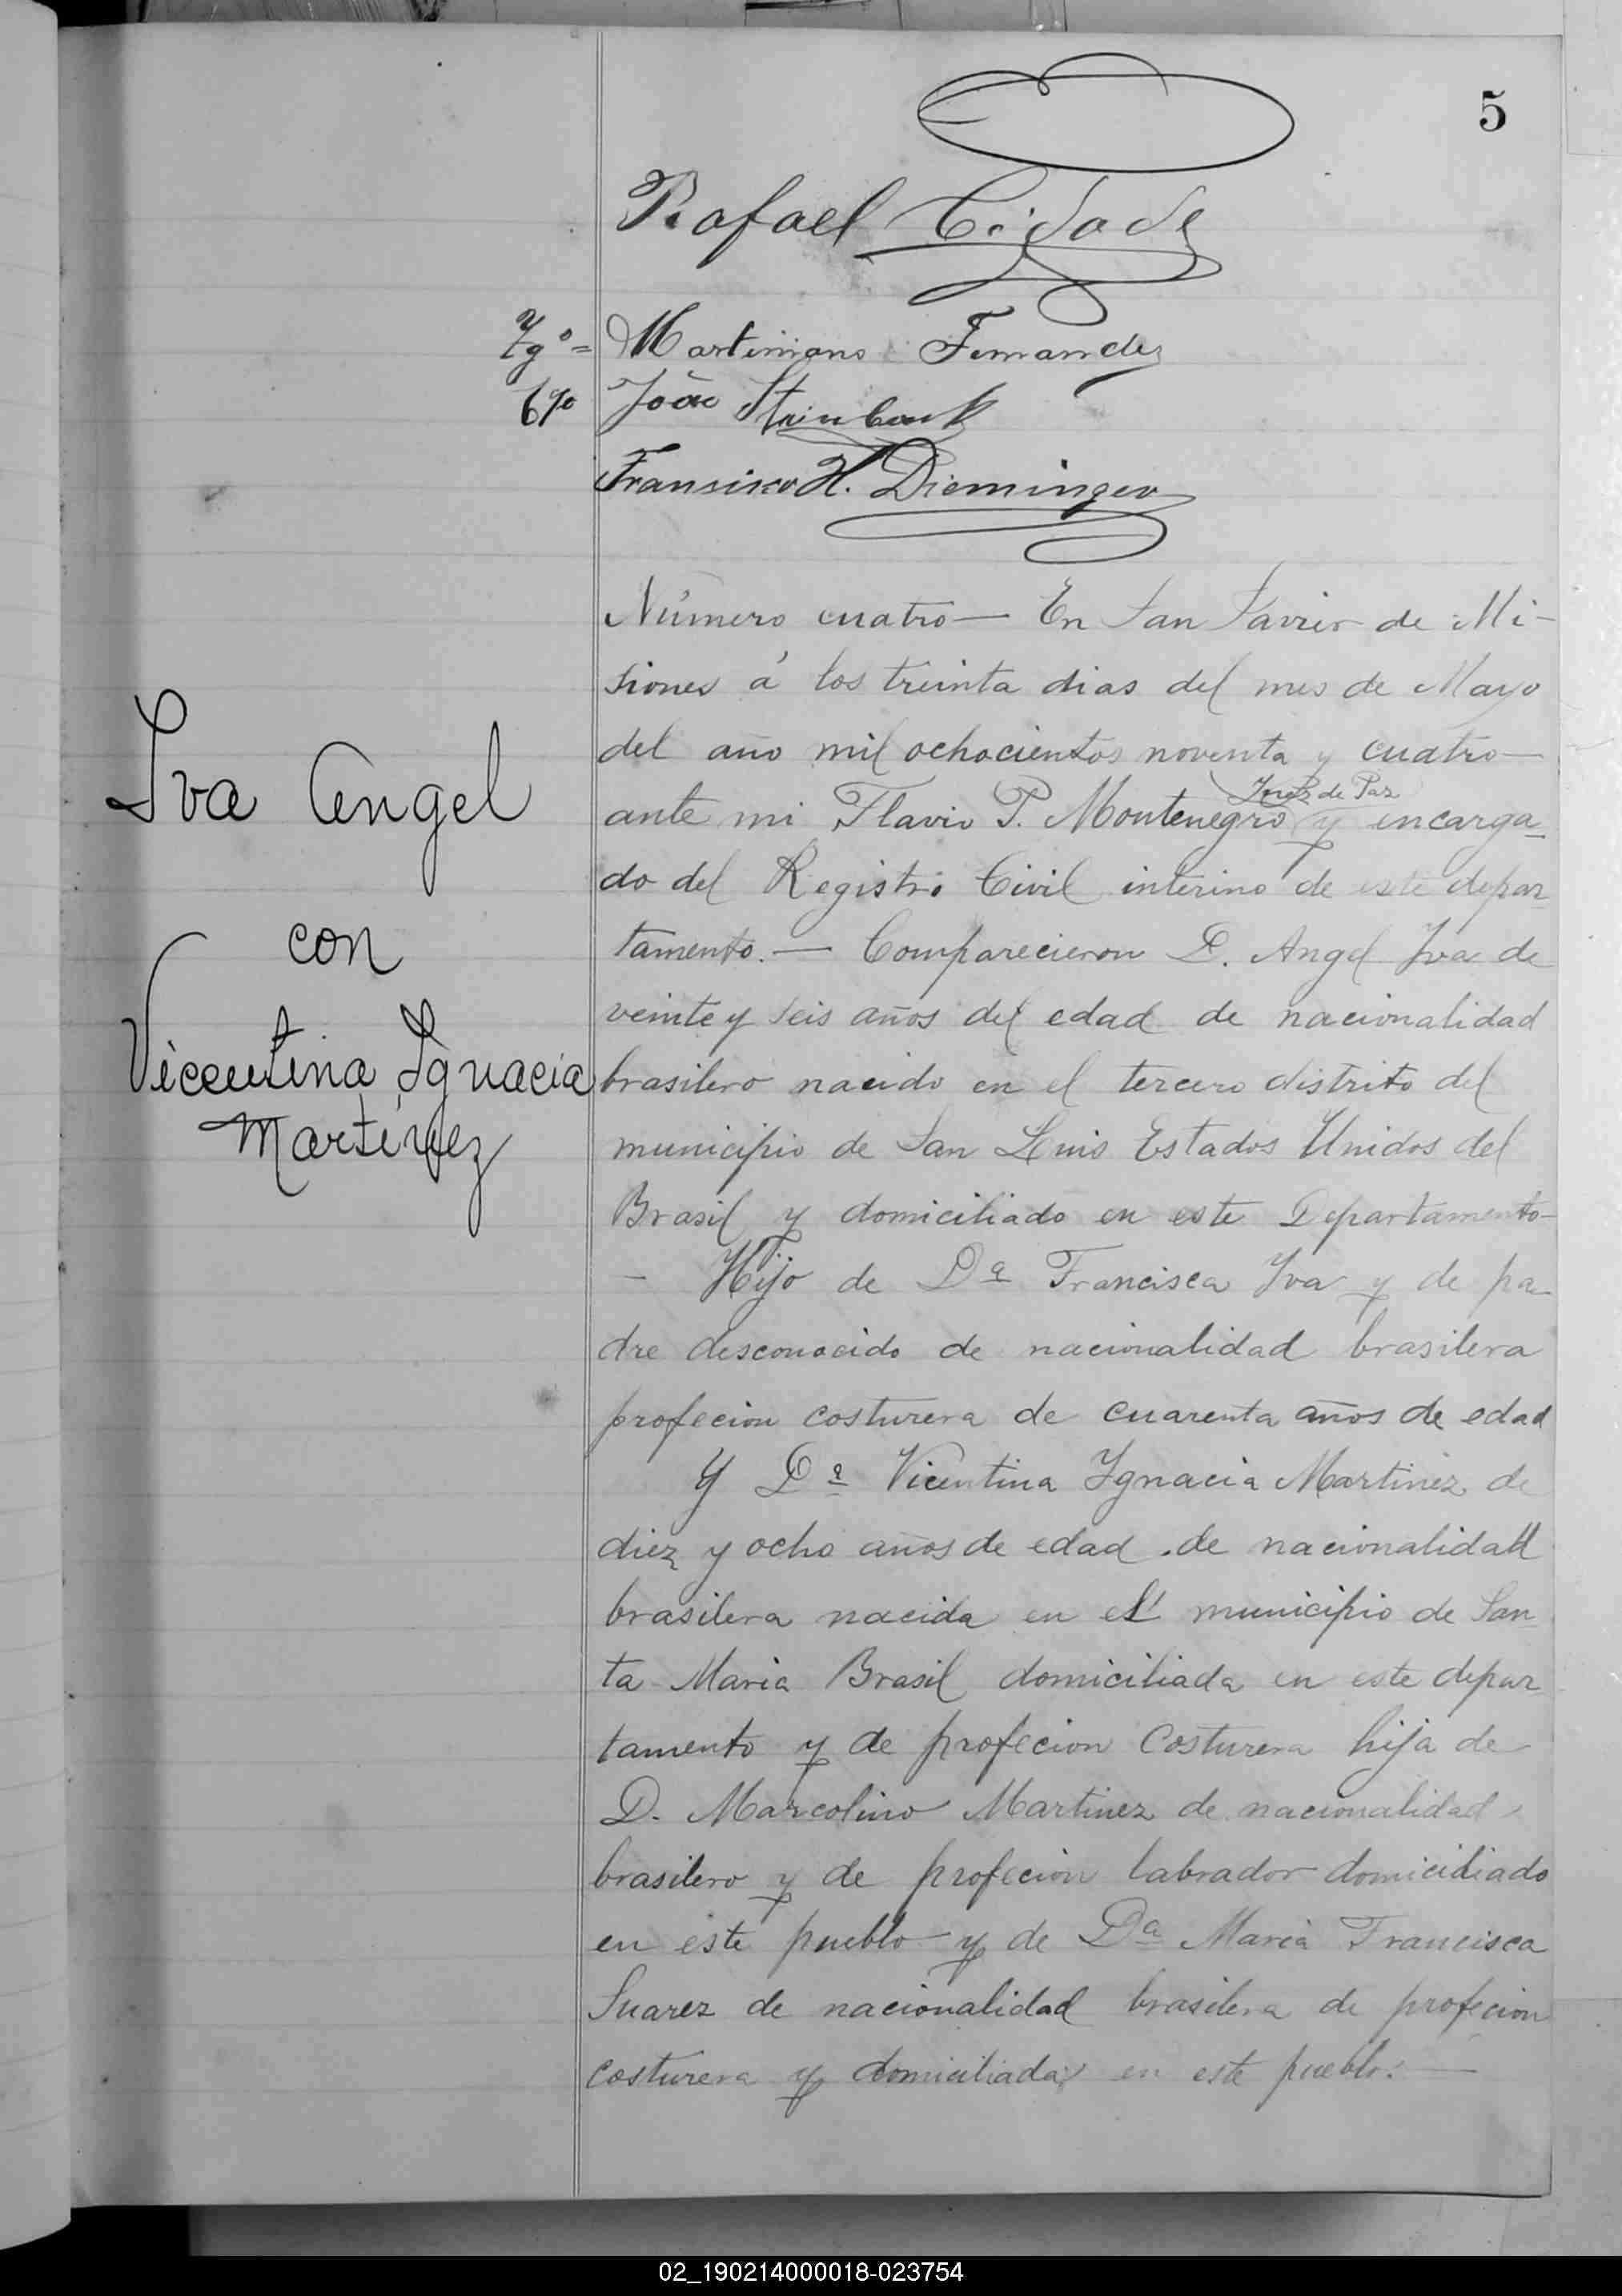 5
Rafael Cidade
Tgº= Martiniano Fernandez
tgo João Steinbank
Fransisco H. Dieminger
Número cuatro — En San Javier de Mi-
siones á los treinta dias del mes de Mayo
del año mil ochocientos noventa y cuatro —
Juez de Paz
ante mi Flavio P. Montenegro y encarga-
do del Registro Civil interino de este depar-
tamento. — Comparecieron D. Angel Iva de
veinte y seis años del edad de nacionalidad
brasilero nacido en el tercero distrito del
municipio de San Luis Estados Unidos del
Brasil y domiciliado en este Departamento —
— Hijo de Dª Francisca Iva y de pa-
dre desconocido de nacionalidad brasilera
profecion costurera de cuarenta años de edad
Y Dª Vicentina Ignacia Martinez de
diez y ocho años de edad de nacionalidad
brasilera nacida en el municipio de San-
ta Maria Brasil domiciliada en este depar-
tamento y de profecion Costurera hija de
D. Marcolino Martinez de nacionalidad
brasilero y de profecion labrador domicidiado
en este pueblo y de Dª Maria Francisca
Suarez de nacionalidad brasilera de profecion
costurera y domiciliada en este pueblo. —
Iva Angel
con
Vicentina Ignacia
Martinez
02_190214000018-023754